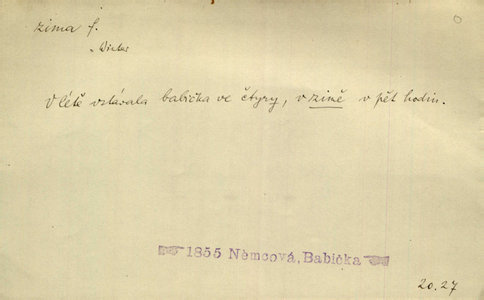 zima f.
„Winter
V létě vstávala babička ve čtyry, v zimě v pět hodin.
1855 Němcová, Babička
20.27